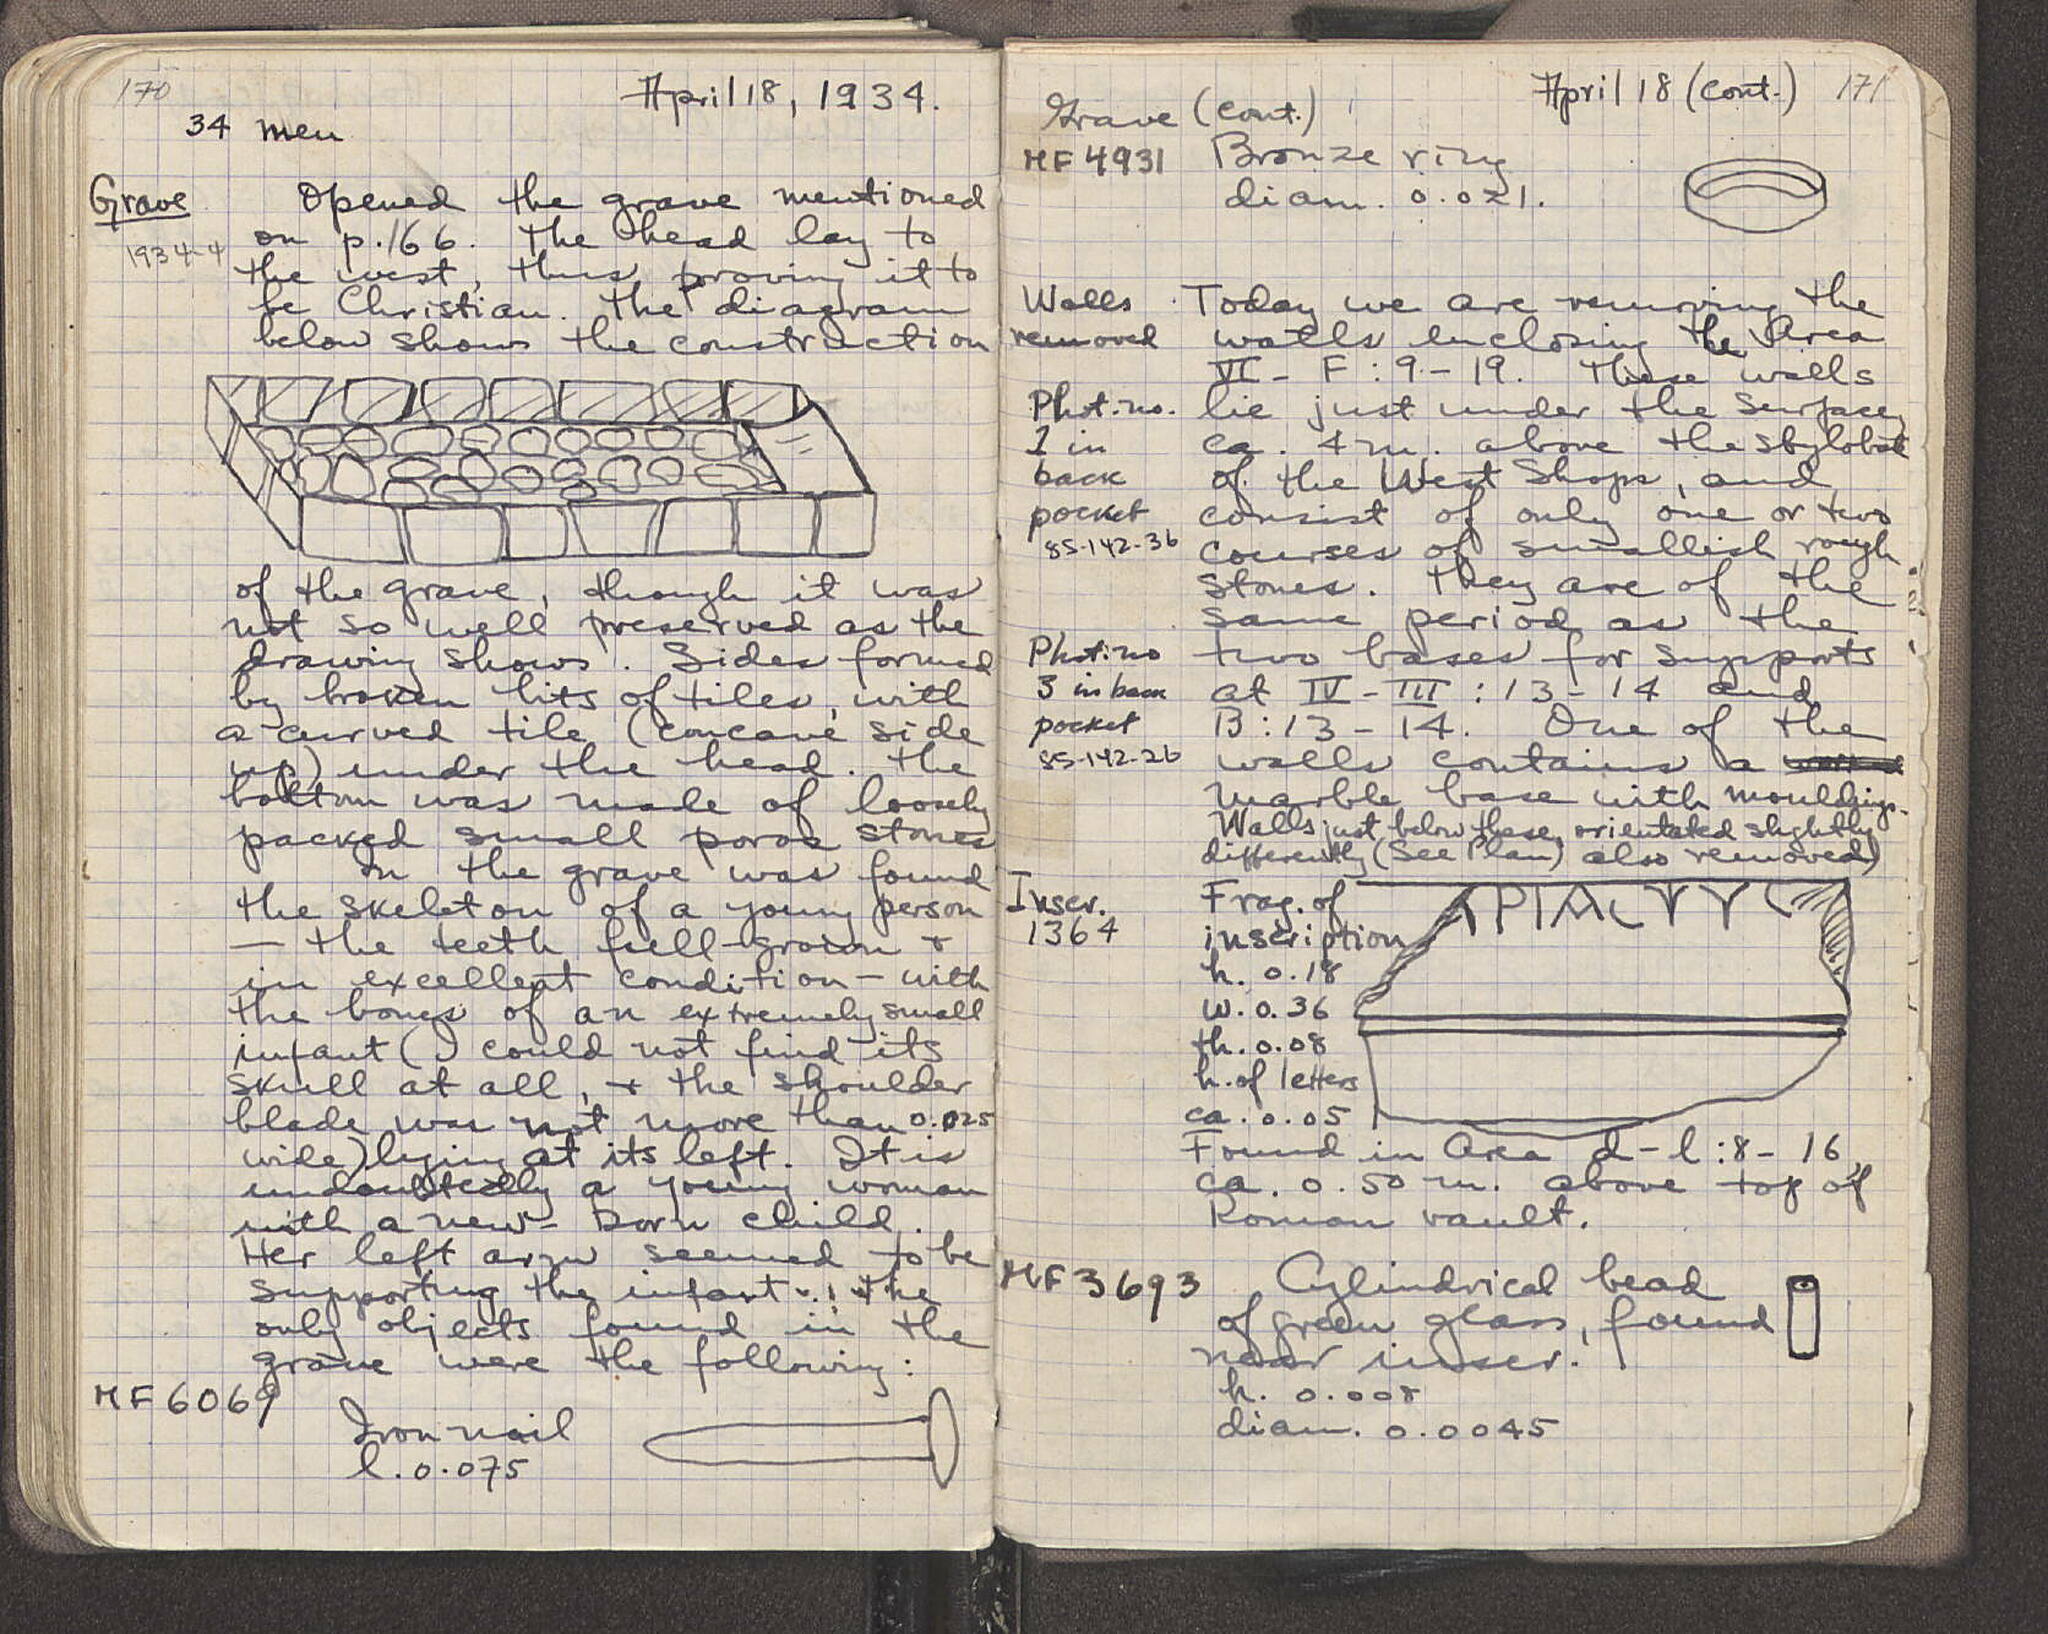 170
April 18, 1934.
34 men
Grave
1934-4
Opened the grave mentioned
on p. 166. The head lay to
the west, thus proving it to
be Christian. The diagram
below shows the construction
of the grave, though it was
not so well preserved as the
drawing shows. Sides formed
by broken bits of tiles, with
a curved tile (concave side
up) under the head. The
bottom was made of loosely
packed small poros stones
In the grave was found
the skeleton of a young person
— the teeth full-grown +
in excellent condition — with
the bones of an extremely small
infant (I could not find its
skull at all, + the shoulder
blade was not more than 0.025
wide) lying at its left. It is
undoubtedly a young woman
with a new-born child.
Her left arm seemed to be
supporting the infant. The
only objects found in the
grave were the following:
MF 6069
Iron nail
l. 0.075
April 18 (cont.) 171
Grave (cont.)
MF 4931 Bronze ring
diam. 0.021.
Walls
removed
Today we are removing the
walls enclosing the Area
VI - F : 9 - 19. These walls
Phot. no.
1 in
back
pocket
85-142-36
lie just under the surface,
ca. 4 m. above the stylobate
of the West Shops, and
consist of only one or two
courses of smallish rough
stones. They are of the
same period as the
Phot. no
3 in back
pocket
85-142-26
two bases for supports
at IV - III : 13 - 14 and
B : 13 - 14. One of the
walls contains a
marble base with mouldings.
Walls just below these, orientated slightly
differently (See Plan) also removed)
Inscr.
1364
Frag. of
inscription
h. 0.18
w. 0.36
th. 0.08
h. of letters
ca. 0.05
Found in Area d - l : 8 - 16
ca. 0.50 m. above top of
Roman vault.
MF 3693 Cylindrical bead
of green glass, found
near inscr.
h. 0.008
diam. 0.0045